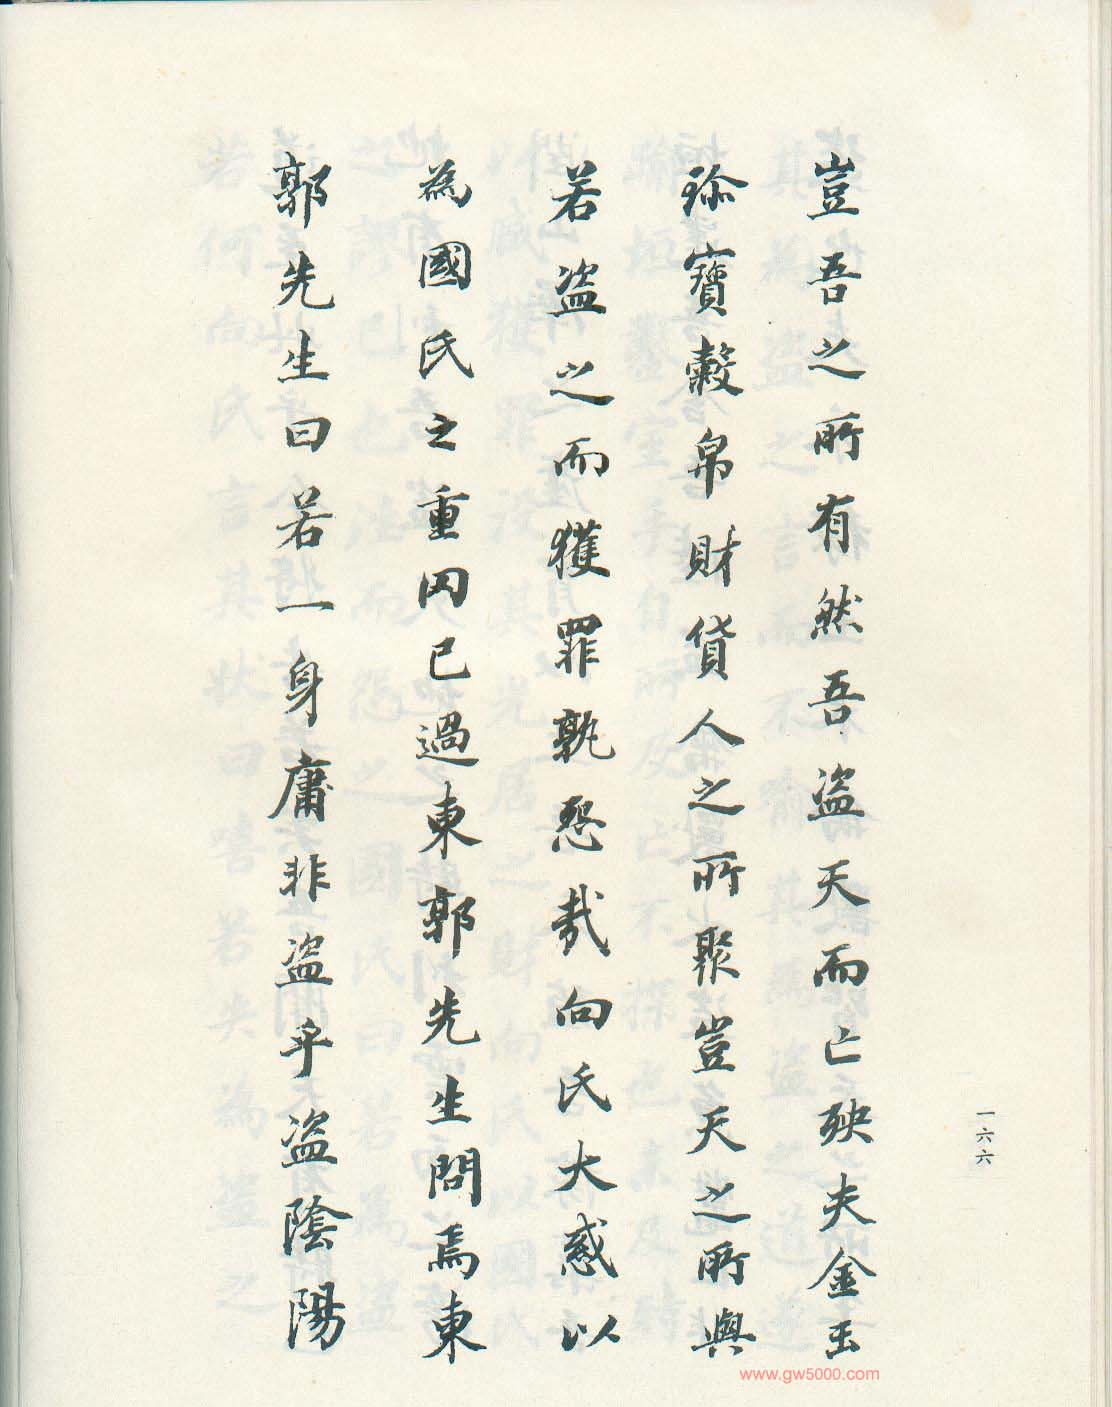 一六六
豈吾之所有然吾盗天而亡殃夫金玉
珎寶糓帛財貨人之所聚豈天之所與
若盗之而獲罪孰怨哉向氏大惑以
為國氏之重罔已過東郭先生問焉東
郭先生曰若一身庸非盗乎盗陰陽
www.gw5000.com